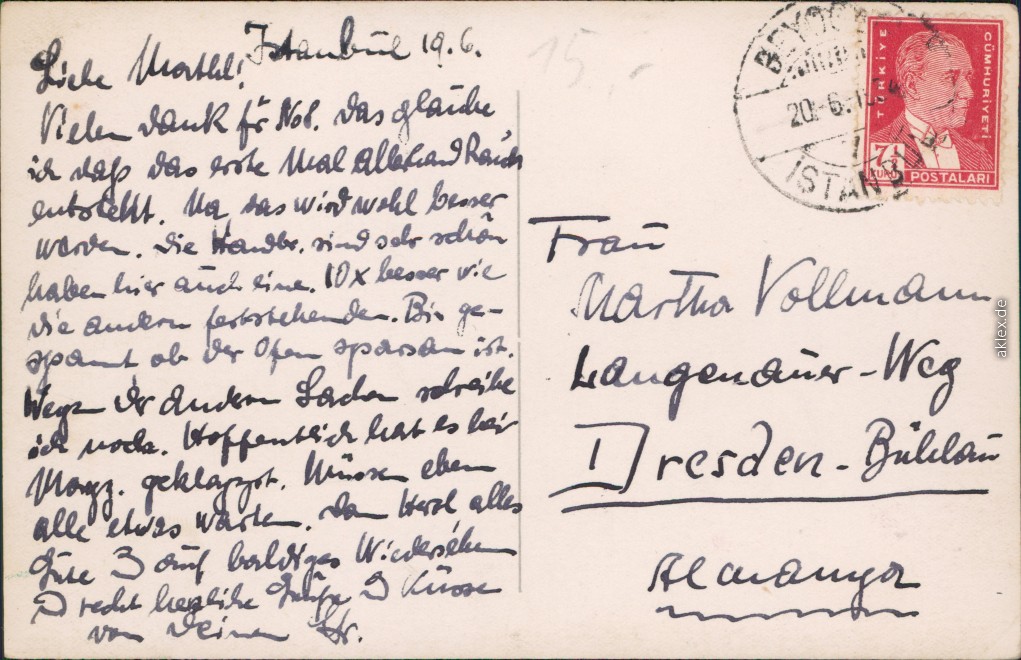 Istanbul 19.6.
Liebe Marthl!
Vielen Dank für No8. das glaube
ich daß das erste Mal allerhand Rauch
entsteht. Na das wird wohl besser
werden. Die Handbr. sind sehr schön
haben hier auch eine. 10x besser wie
die andern feststehenden. Bin ge-
spannt ob der Ofen sparsam ist.
Wegen der andern Sachen schreibe
ich noch. Hoffentlich hat es bei
geklappt. Müssen eben
alle etwas warten. Dem Herzl alles
Gute & auf baldiges Wiedersehen
& recht herzliche Grüße & Küsse
von Deinem
15.-
BEYOĞLU
20.-6.-1
İSTANBUL
TÜRKİYE
CÜMHURİYETİ
7½
KURUŞ
POSTALARI
Frau
Martha Vollmann
Langenauer-Weg
Dresden-Bühlau
Almanya
aklex.de